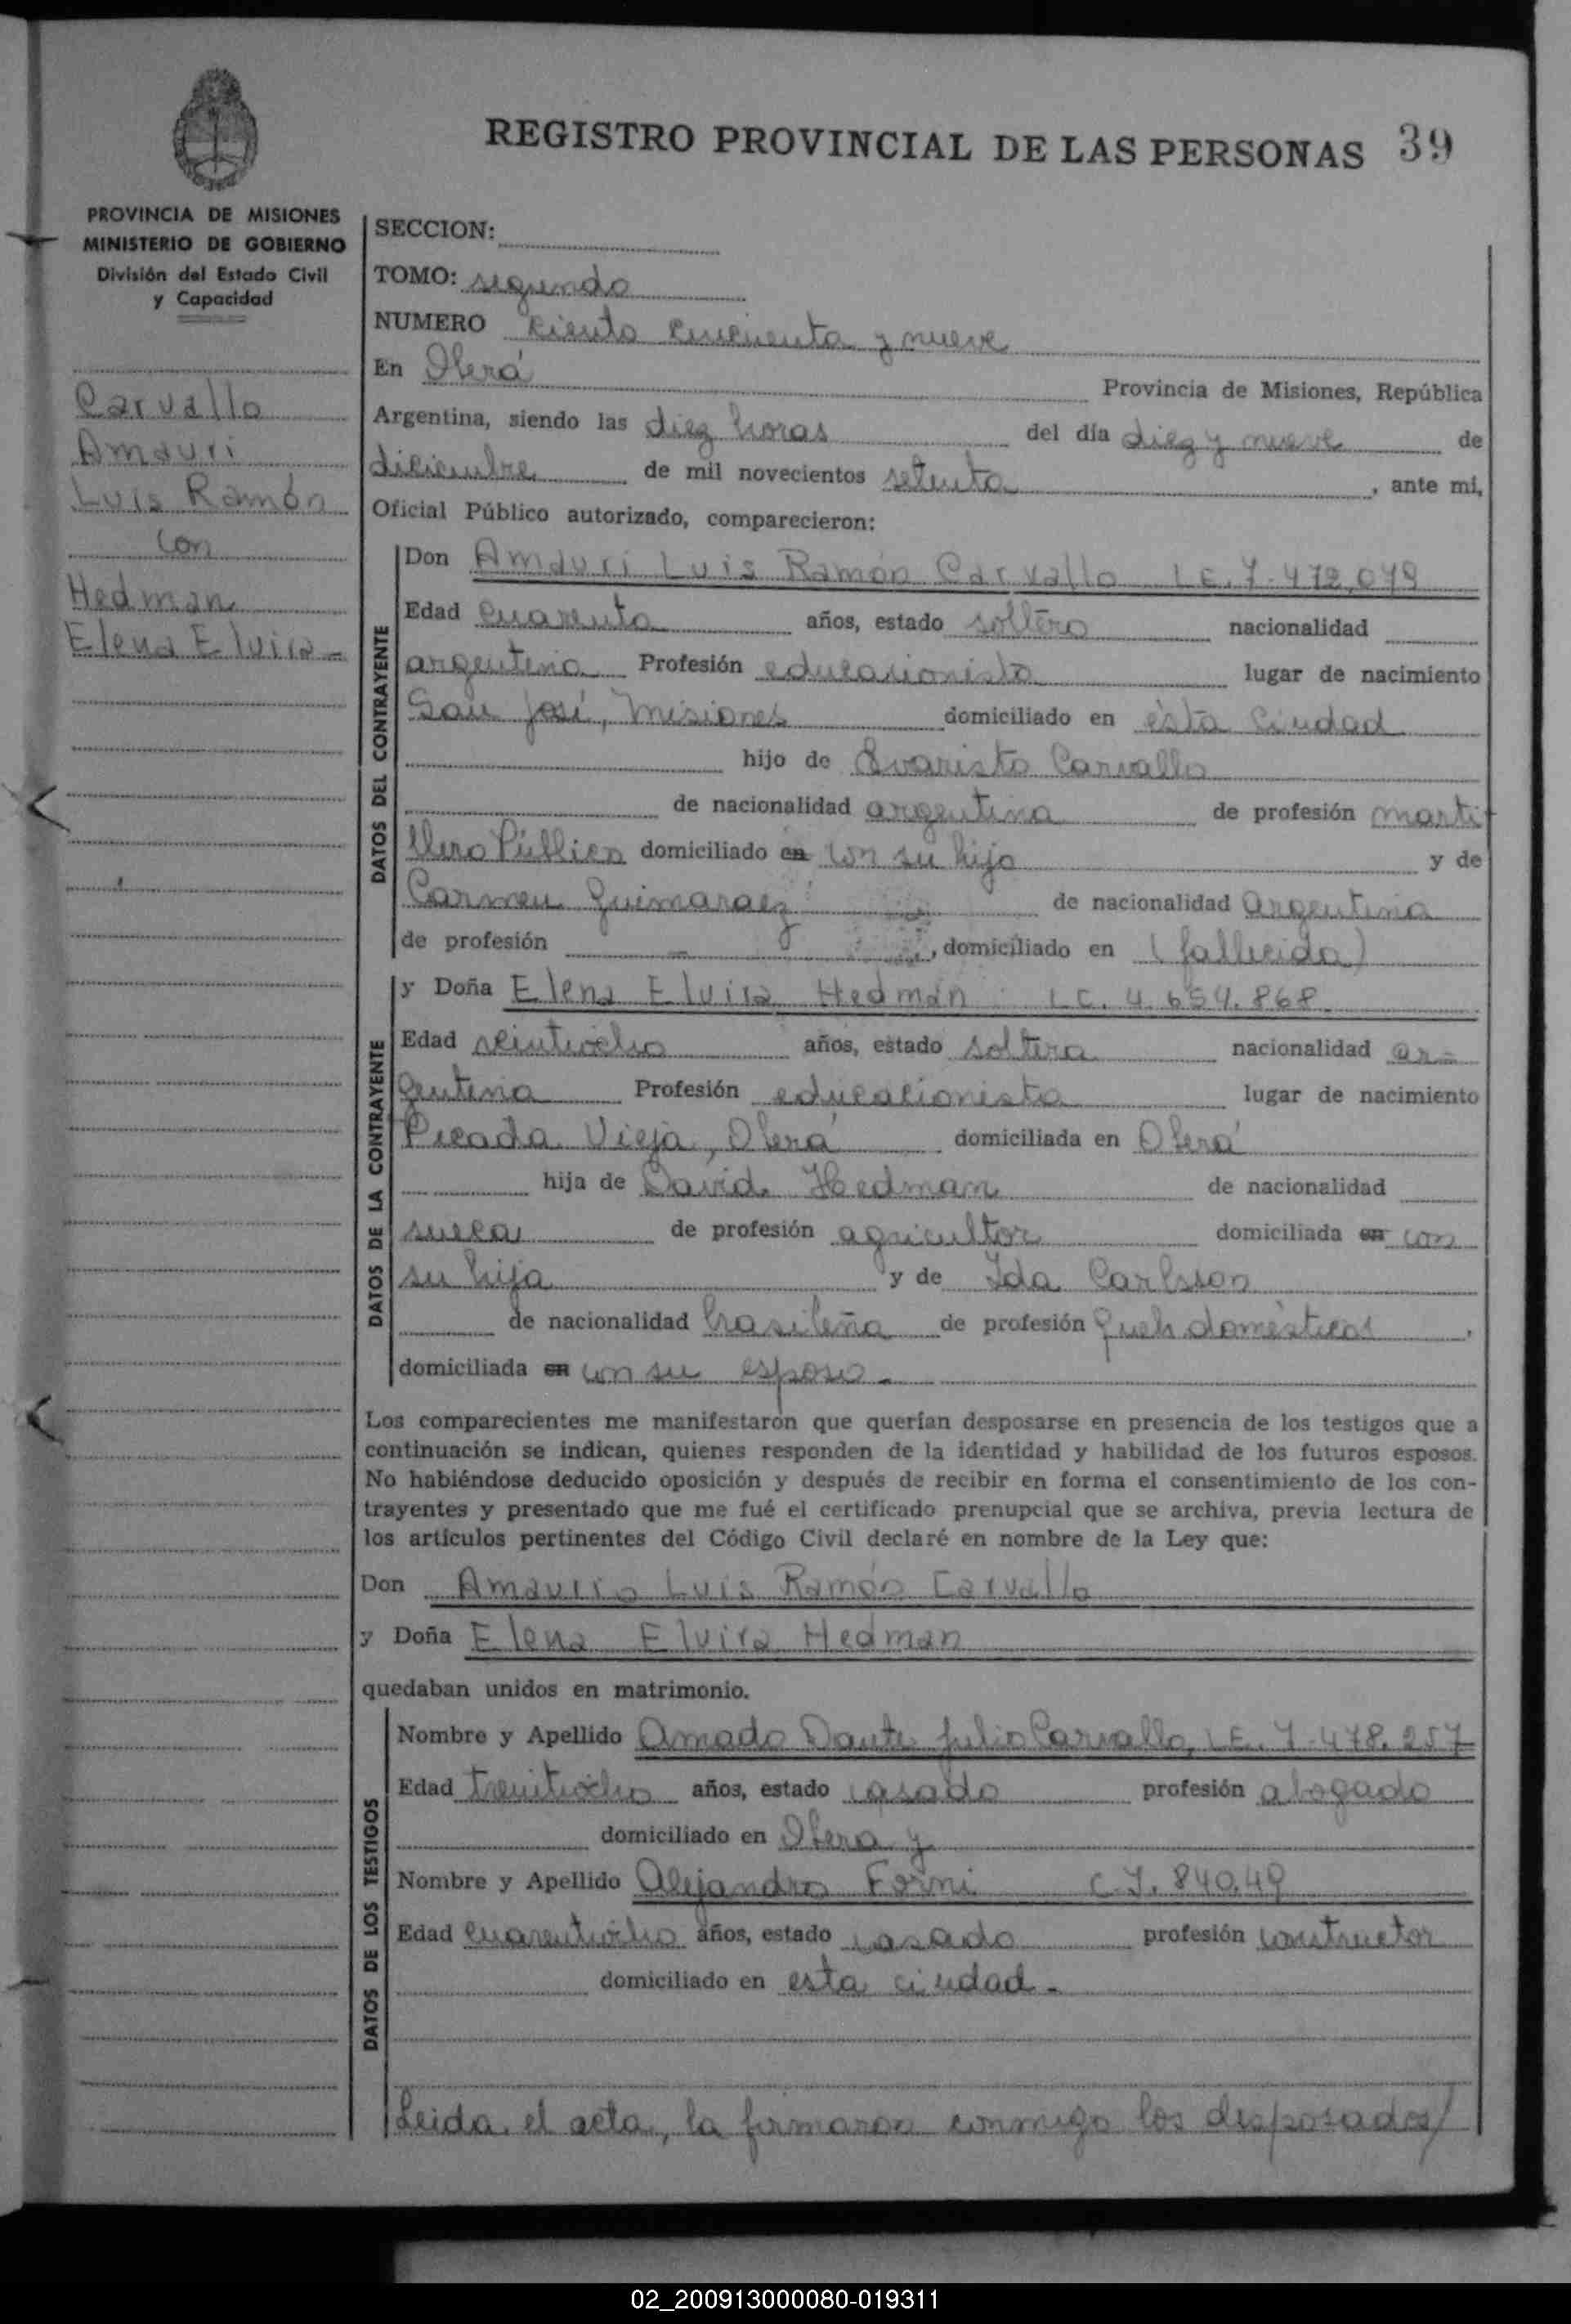 REGISTRO PROVINCIAL DE LAS PERSONAS 39
PROVINCIA DE MISIONES
MINISTERIO DE GOBIERNO
División del Estado Civil
y Capacidad
Carvallo
Amauri
Luis Ramón
con
Hedman
Elena Elvira-
SECCION:
TOMO: segundo
NUMERO ciento cincuenta y nueve
En Oberá Provincia de Misiones, República
Argentina, siendo las diez horas del día diez y nueve de
diciembre de mil novecientos setenta, ante mi,
Oficial Público autorizado, comparecieron:
DATOS DEL CONTRAYENTE
Don Amauri Luis Ramon Carvallo L.E. 7.472.079
Edad cuarenta años, estado soltero nacionalidad
argentina Profesión educacionista lugar de nacimiento
San José, Misiones domiciliado en ésta Ciudad
hijo de Evaristo Carvallo
de nacionalidad argentina de profesión marti
llero Público domiciliado en con su hijo y de
Carmen Guimaraez de nacionalidad Argentina
de profesión -, domiciliado en (fallecida)
DATOS DE LA CONTRAYENTE
y Doña Elena Elvira Hedman L.C. 4.654.868
Edad veintiocho años, estado soltera nacionalidad ar-
gentina Profesión educacionista lugar de nacimiento
Picada Vieja, Oberá domiciliada en Oberá
hija de David Hedman de nacionalidad
sueca de profesión agricultor domiciliada en con
su hija y de Ida Carlsson
de nacionalidad brasileña de profesión queh. domésticos,
domiciliada en con su esposo.-
Los comparecientes me manifestaron que querían desposarse en presencia de los testigos que a
continuación se indican, quienes responden de la identidad y habilidad de los futuros esposos.
No habiéndose deducido oposición y después de recibir en forma el consentimiento de los con-
trayentes y presentado que me fué el certificado prenupcial que se archiva, previa lectura de
los artículos pertinentes del Código Civil declaré en nombre de la Ley que:
Don Amauri Luis Ramón Carvallo
y Doña Elena Elvira Hedman
quedaban unidos en matrimonio.
DATOS DE LOS TESTIGOS
Nombre y Apellido Amado Dante Julio Carvallo, L.E. 7.478.257
Edad treintiocho años, estado casado profesión abogado
domiciliado en Oberá y
Nombre y Apellido Alejandro Forni C.I. 840.49
Edad cuarentiocho años, estado casado profesión constructor
domiciliado en esta ciudad.-
Leida el acta, la firmaron conmigo los desposados/
02_200913000080-019311